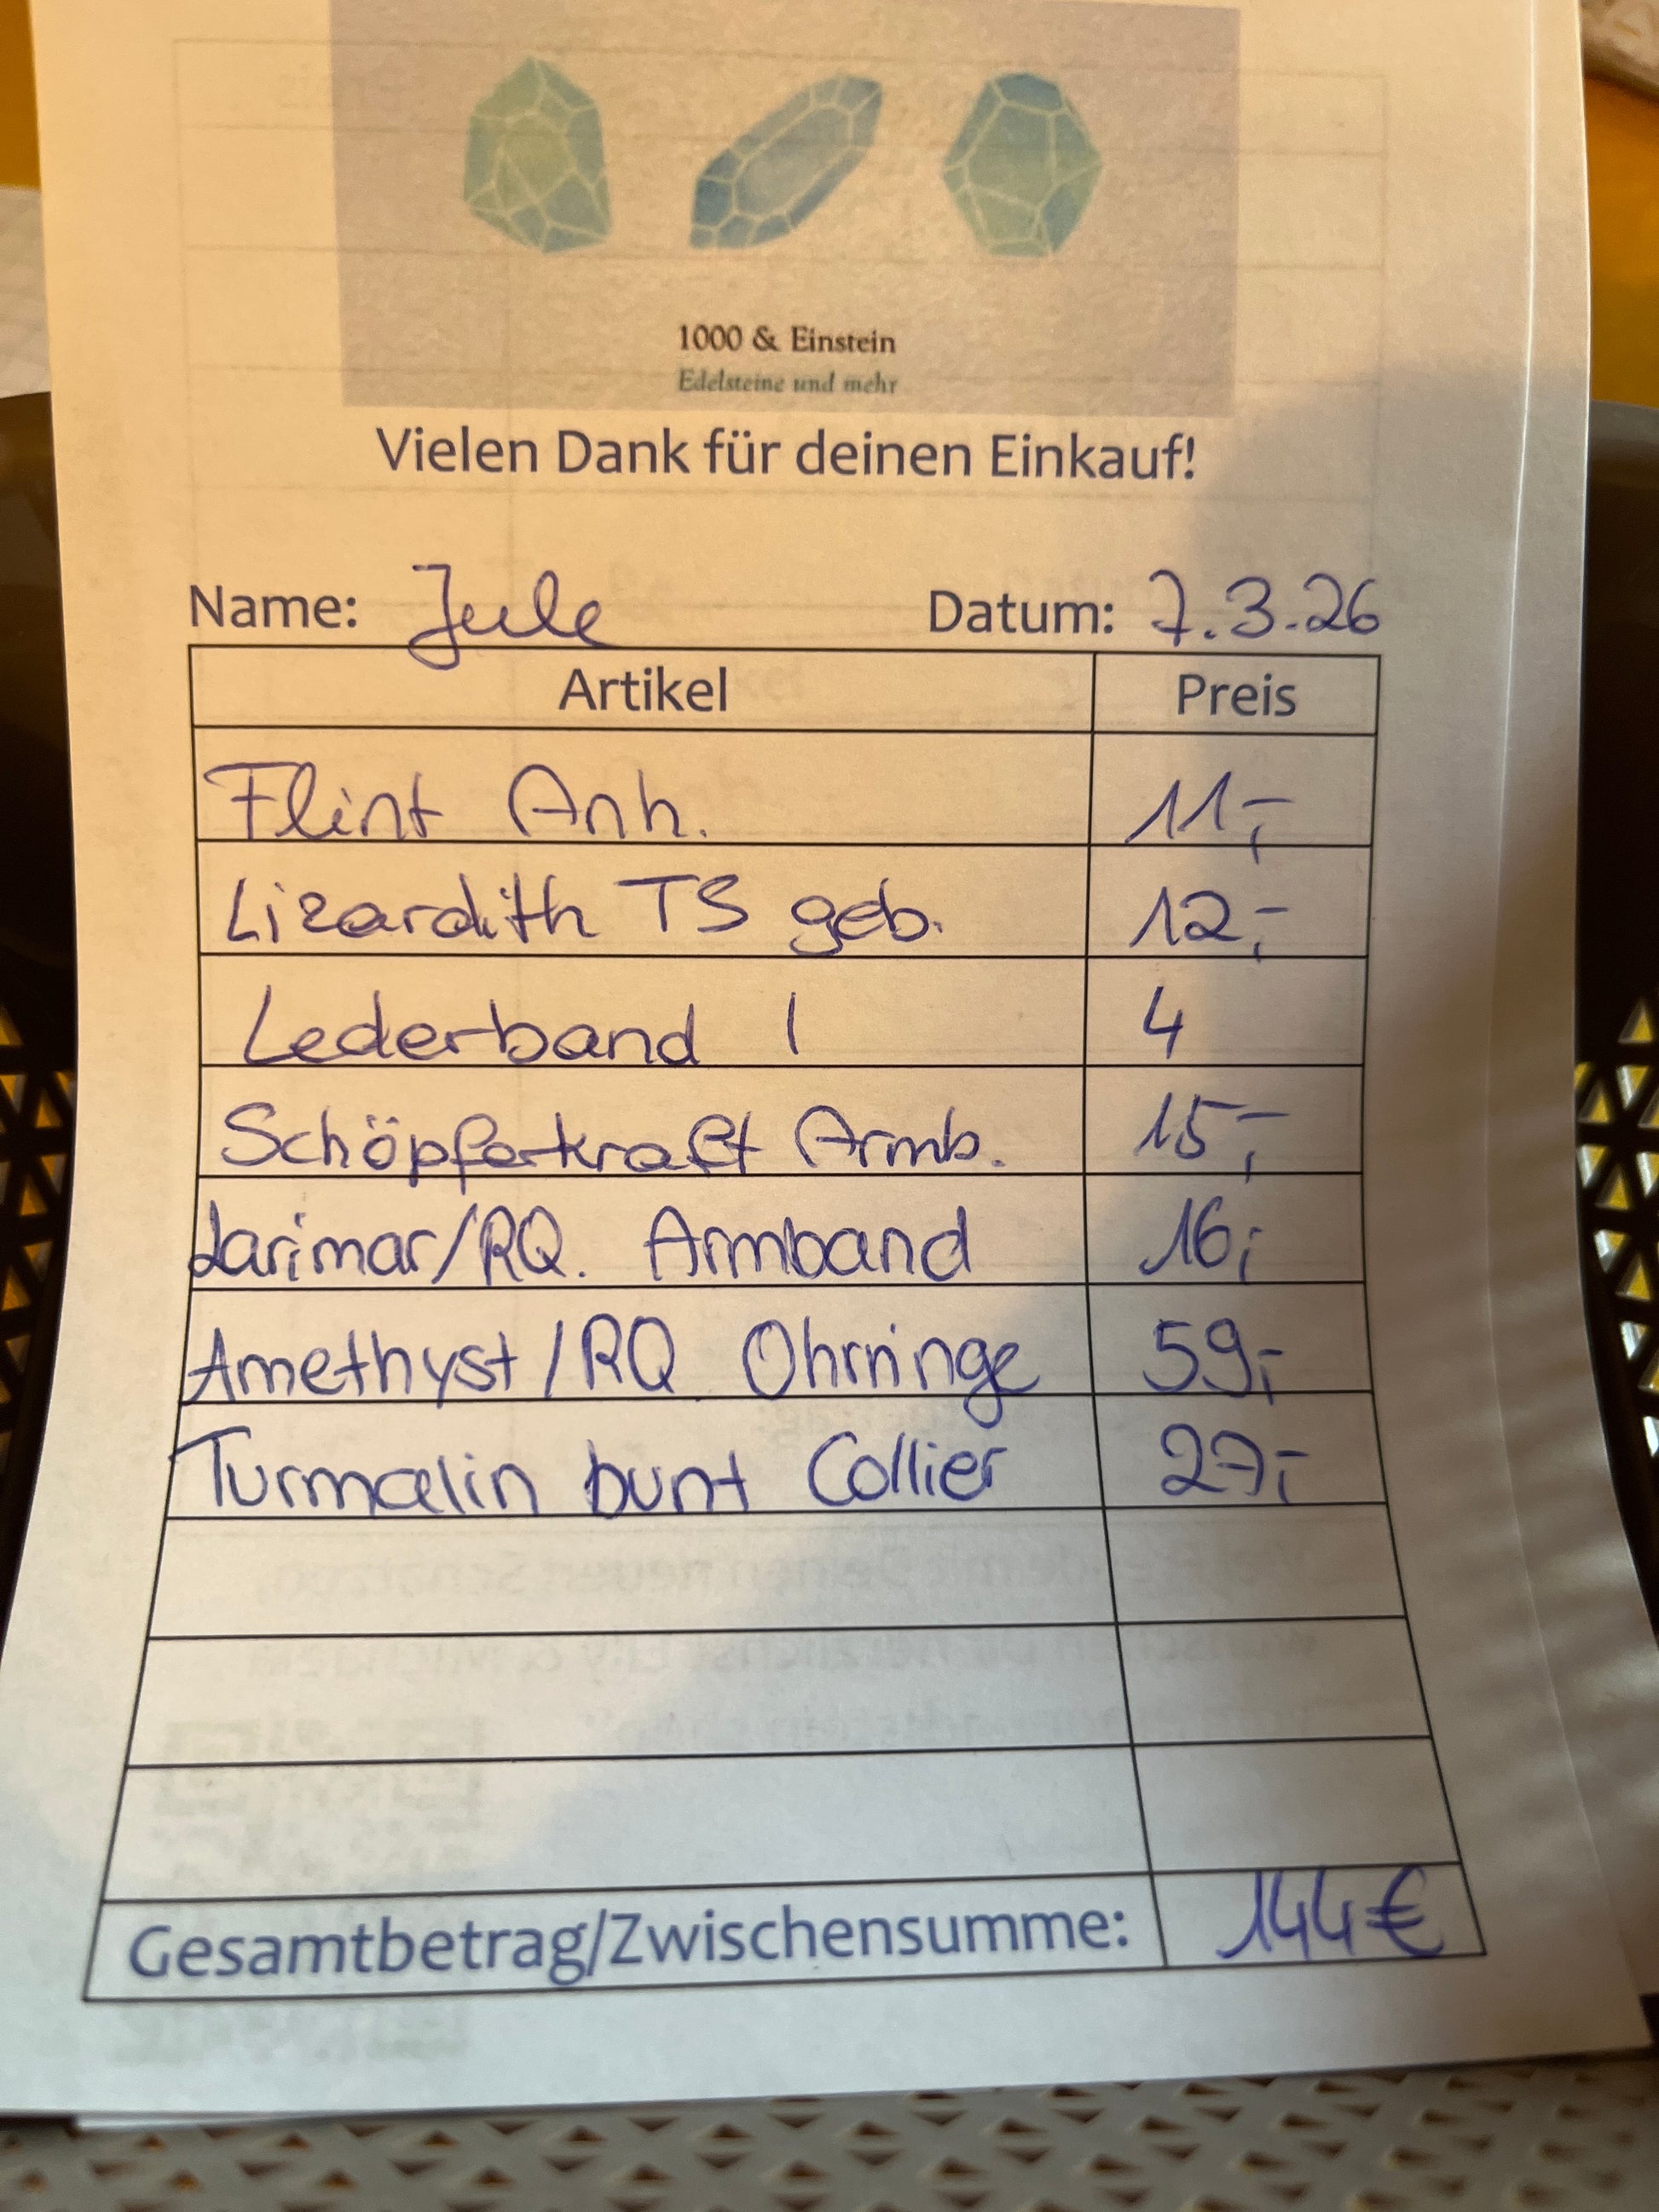 1000 & Einstein
Edelsteine und mehr
Vielen Dank für deinen Einkauf!
Name: Jule Datum: 7.3.26
Artikel Preis
Flint Anh. 11,-
Lizardith TS geb. 12,-
Lederband 1 4
Schöpferkraft Armb. 15,-
Larimar/RQ. Armband 16,-
Amethyst/RQ Ohrringe 59,-
Turmalin bunt Collier 27,-
Gesamtbetrag/Zwischensumme: 144€